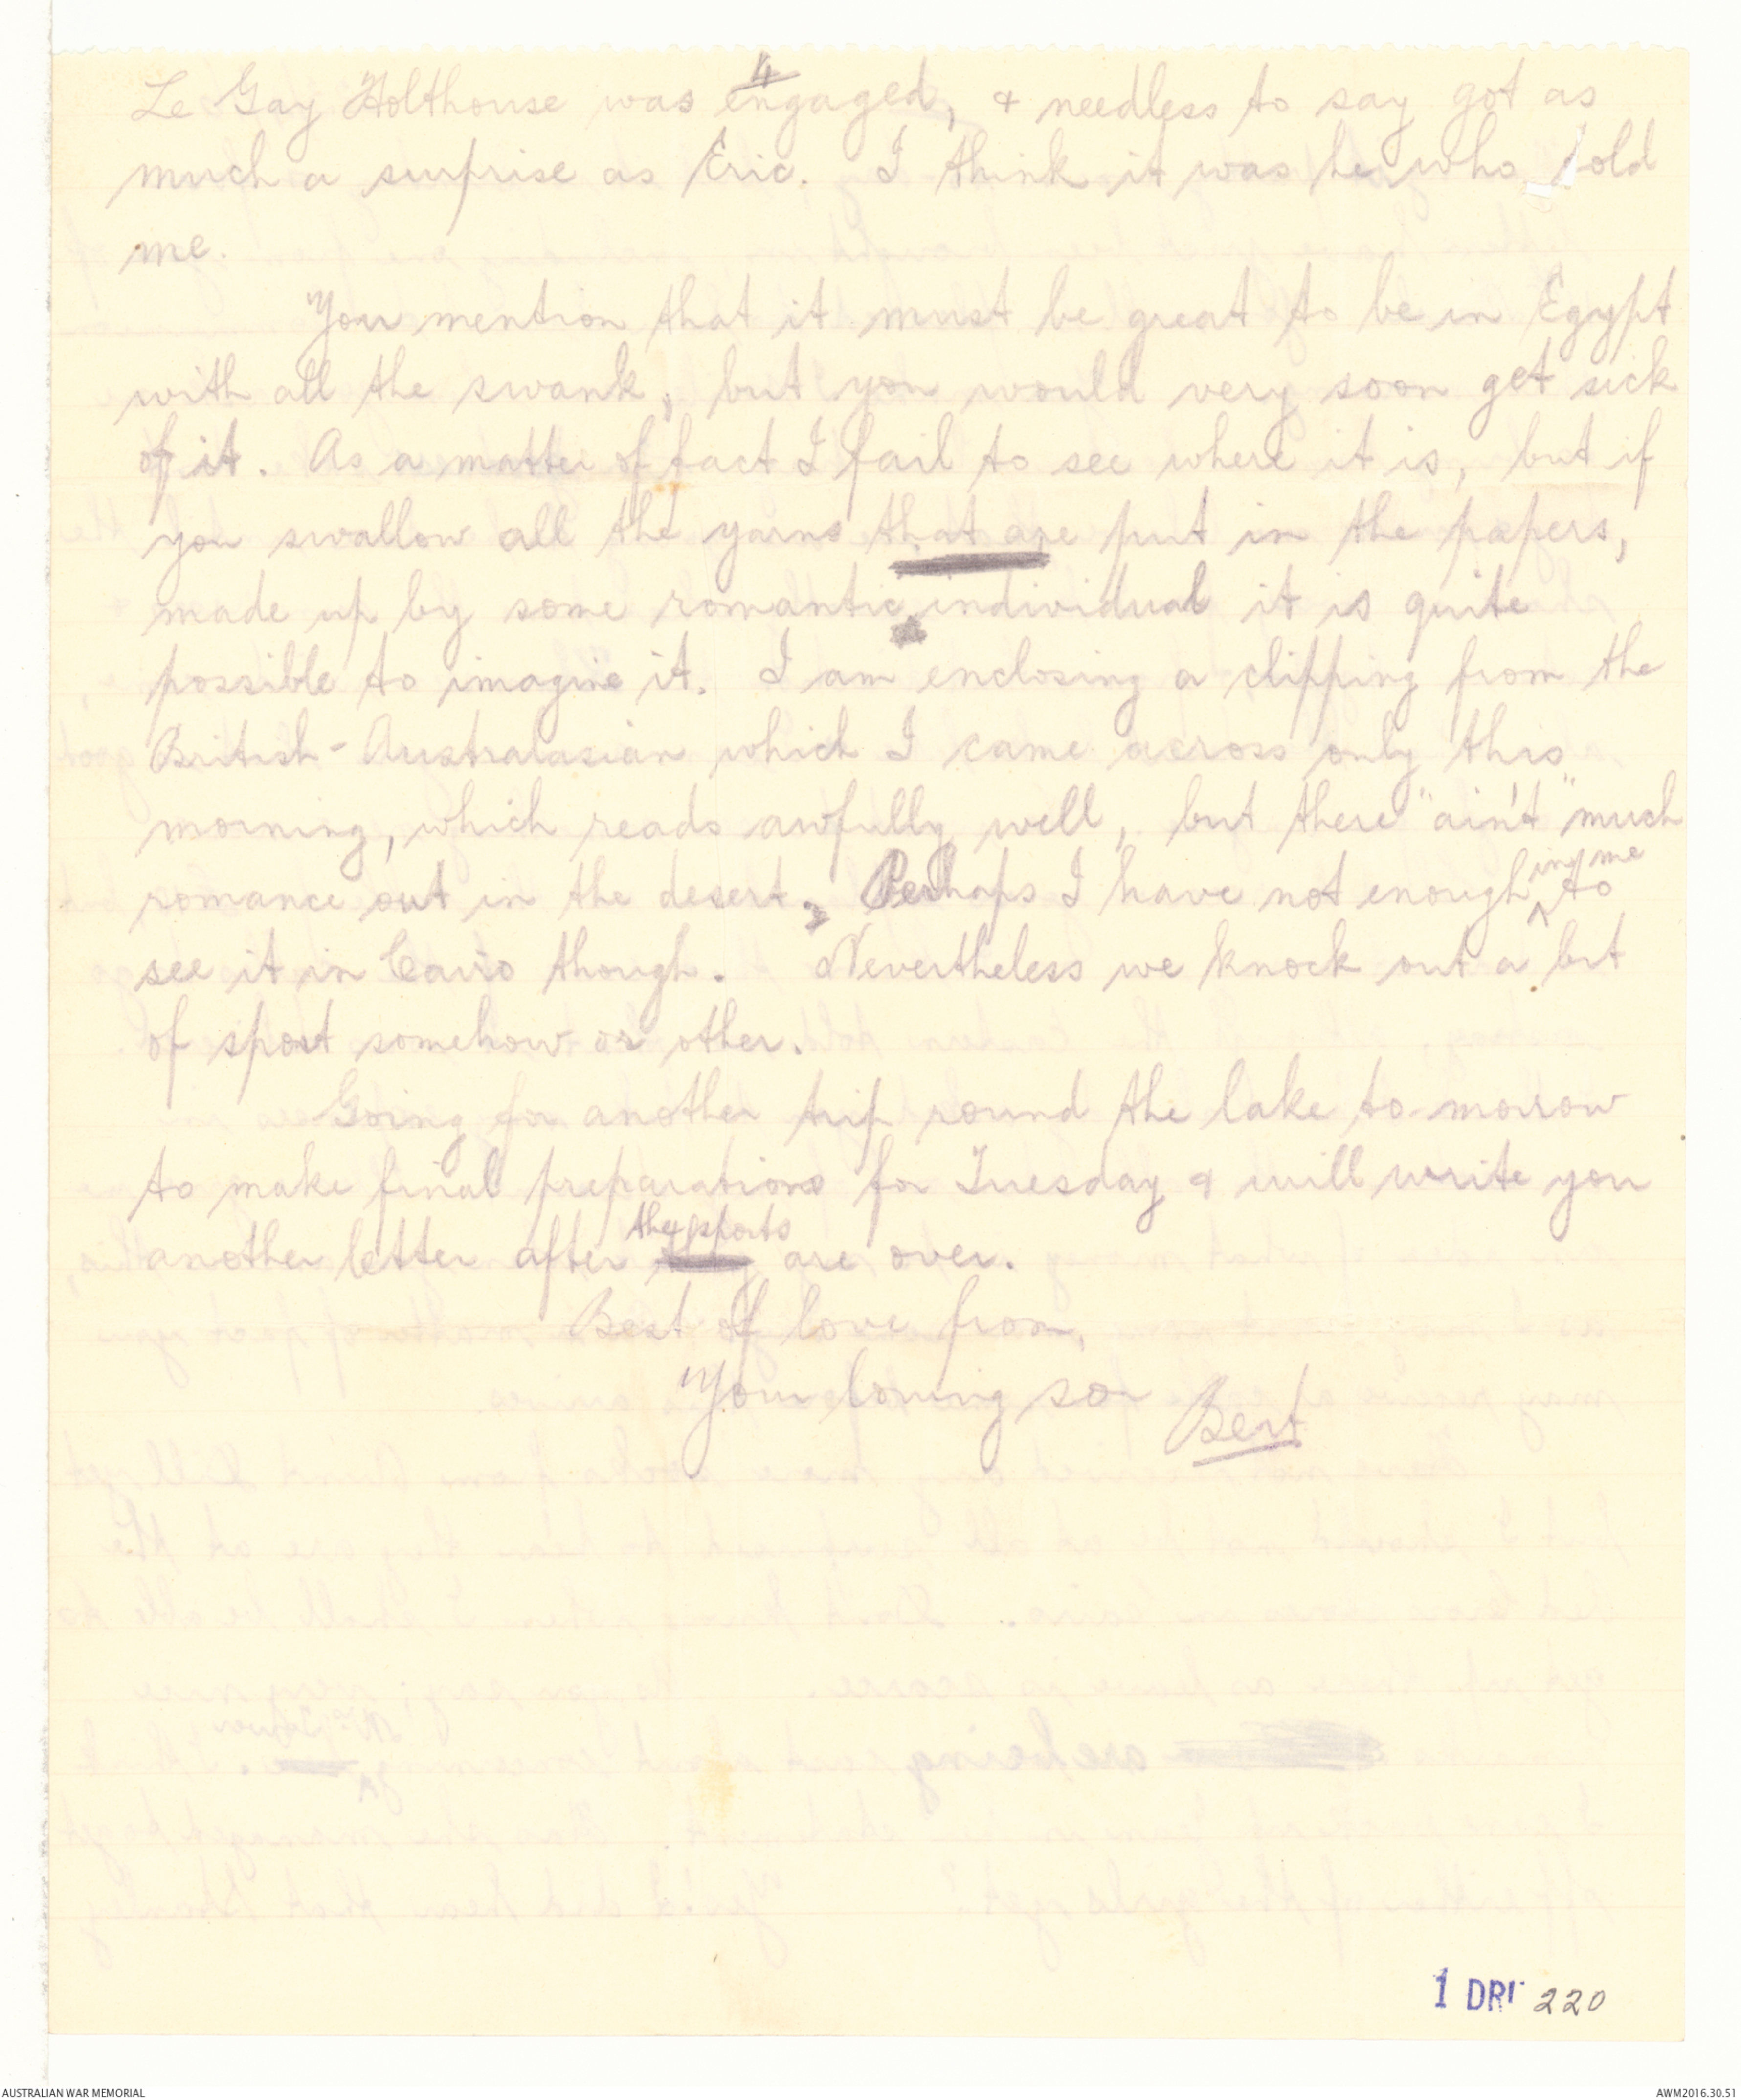 4
Le Gay Holthouse was engaged, & needless to say got as
much a surprise as Eric. I think it was he who told
me.
You mention that it must be great to be in Egypt
with all the swank, but you would very soon get sick
of it. As a matter of fact I fail to see where it is, but if
you swallow all the yarns that are put in the papers,
made up by some romantic individual it is quite
possible to imagine it. I am enclosing a clipping from the
British-Australasian which I came across only this
morning, which reads awfully well, but there "ain't" much
romance out in the desert. Perhaps I have not enough in me to
see it in Cairo though. Nevertheless we knock out a bit
of sport somehow or other.
Going for another trip round the lake to-morrow
to make final preparations for Tuesday & will write you
another letter after the sports are over.
Best of love from,
Your loving son
Bert
1 DRL 220
AUSTRALIAN WAR MEMORIAL
AWM2016.30.51